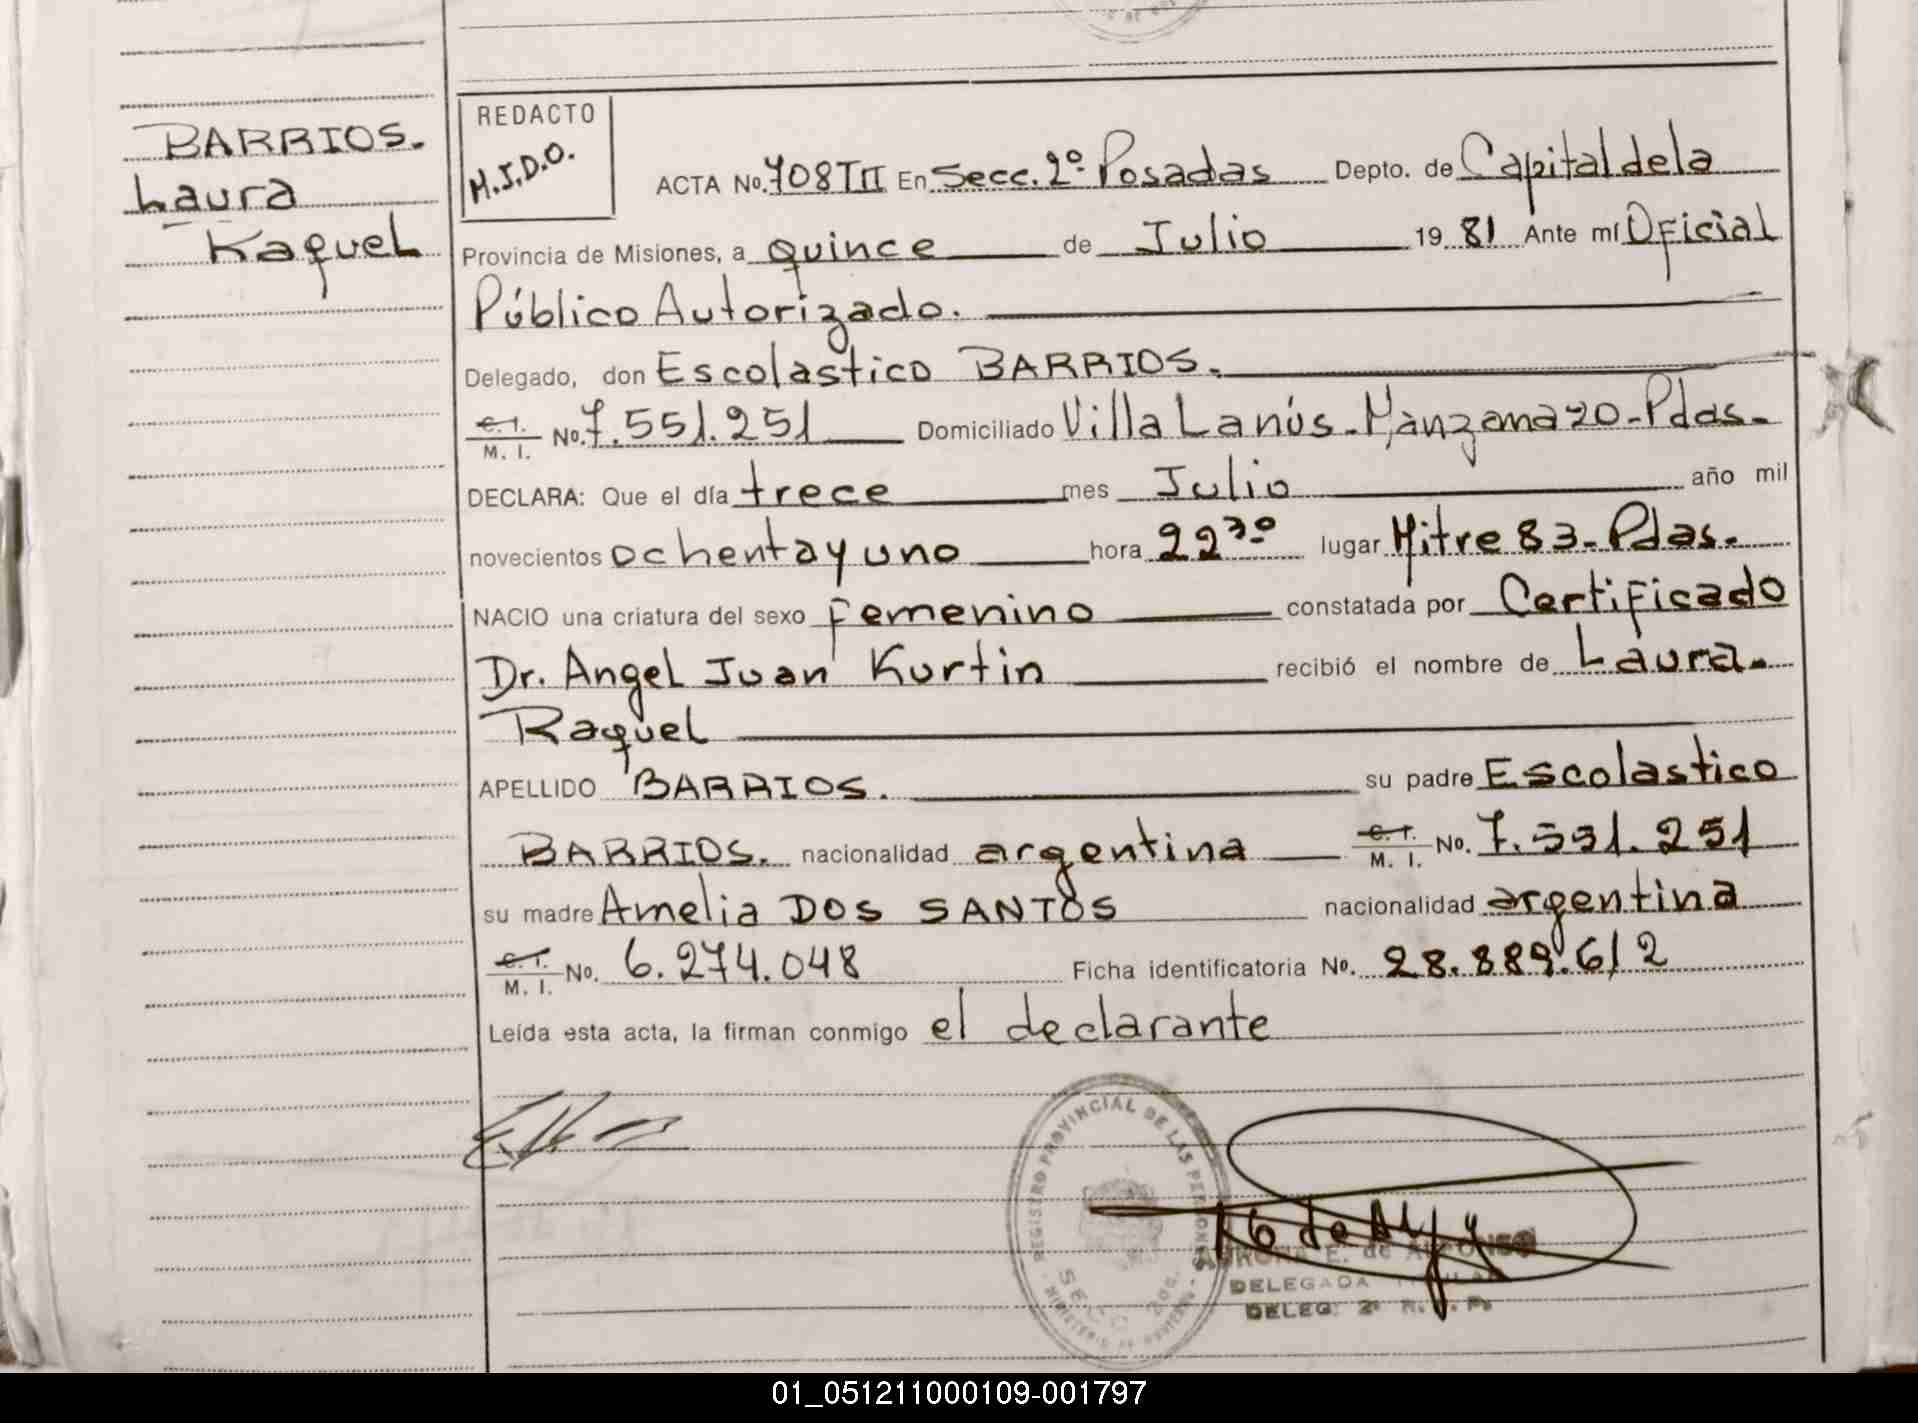 BARRIOS.
Laura
Raquel
REDACTO
M.I.D.O.
ACTA No. 708 TII En Secc. 2º Posadas Depto. de Capital de la
Provincia de Misiones, a quince de Julio 19 81 Ante mí Oficial
Público Autorizado.
Delegado, don Escolastico BARRIOS.
C. I.
M. I. No. 7.551.251 Domiciliado Villa Lanús - Manzana 20 - Pdas.
DECLARA: Que el día trece mes Julio año mil
novecientos ochenta y uno hora 22 30 lugar Mitre 83 - Pdas.
NACIO una criatura del sexo femenino constatada por Certificado
Dr. Angel Juan Kurtin recibió el nombre de Laura
Raquel
APELLIDO BARRIOS. su padre Escolastico
BARRIOS. nacionalidad argentina C. I. M. I. No. 7.551.251
su madre Amelia DOS SANTOS nacionalidad argentina
C. I.
M. I. No. 6.274.048 Ficha identificatoria No. 28.889.612
Leída esta acta, la firman conmigo el declarante
REGISTRO PROVINCIAL DE LAS PERSONAS
SECC. 2da.
E. de ALFONSO
DELEGADA TITULAR
DELEG. 2ª R. P. P.
01_051211000109-001797